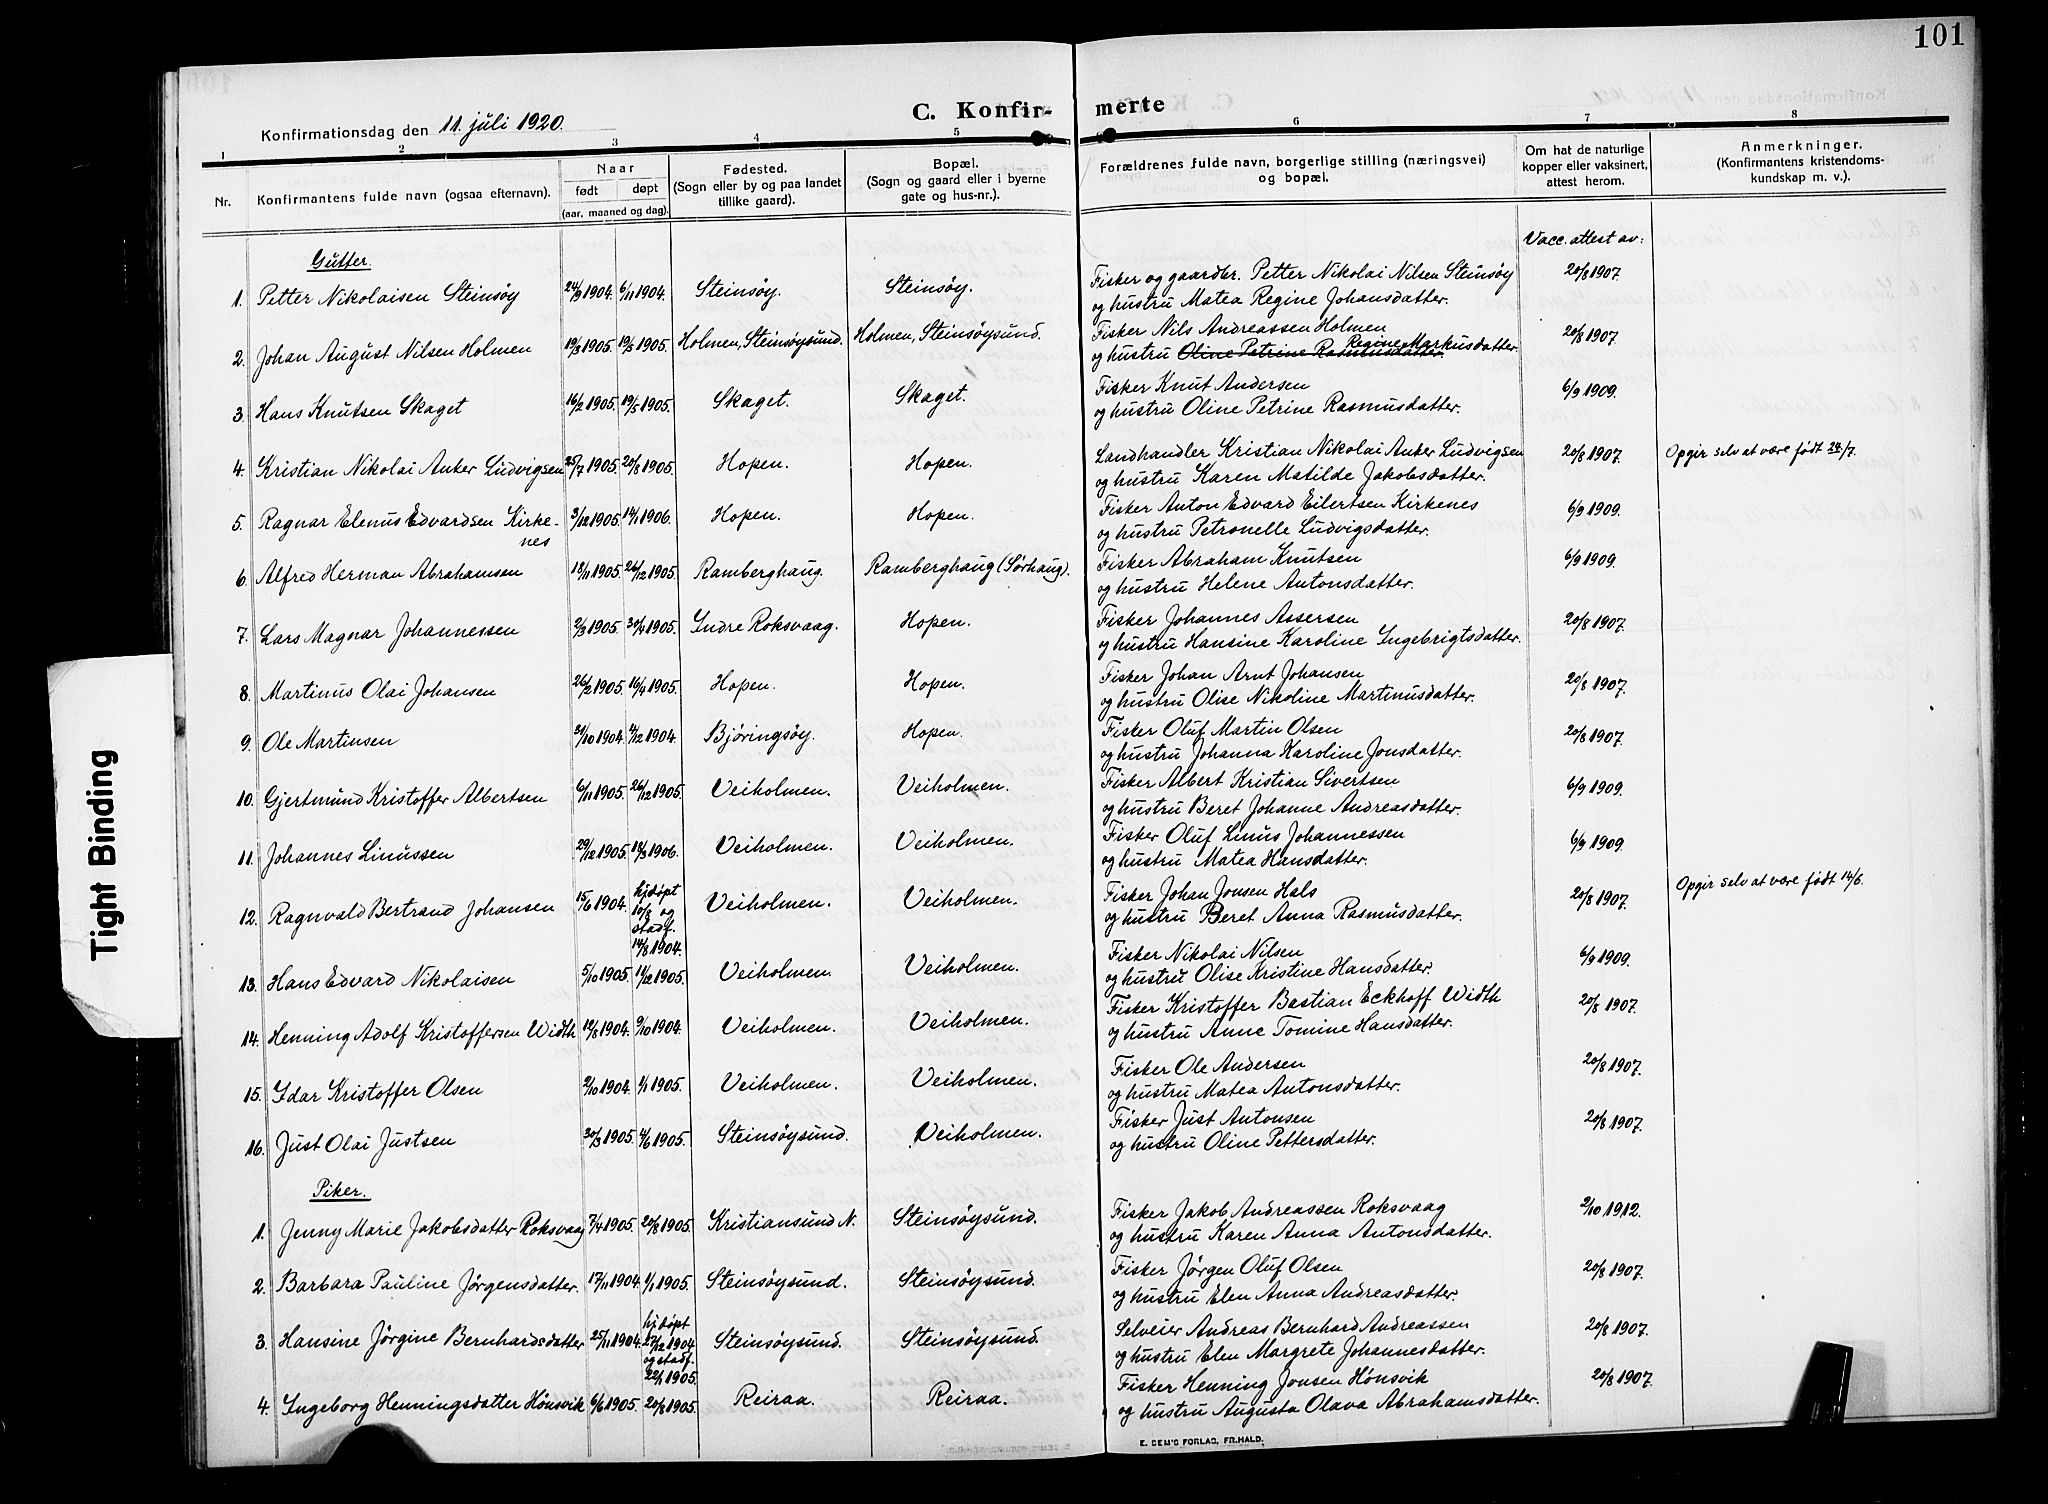 101
C. Konfir- merte
Konfirmationsdag den 11. juli 1920.
1 2 3 4 5 6 7 8
Nr.
Konfirmantens fulde navn (ogsaa efternavn).
Naar
født døpt
(aar, maaned og dag).
Fødested.
(Sogn eller by og paa landet
tillike gaard).
Bopæl.
(Sogn og gaard eller i byerne
gate og hus-nr.).
Forældrenes fulde navn, borgerlige stilling (næringsvei)
og bopæl.
Om hat de naturlige
kopper eller vaksinert,
attest herom.
Anmerkninger.
(Konfirmantens kristendoms-
kundskap m. v.).
Vacc. attest av:
Gutter.
1. Petter Nikolaisen Steinsöy 24/9 1904. 6/11 1904. Steinsöy. Steinsöy. Fisker og gaardbr. Petter Nikolai Nilsen Steinsöy 20/8 1907.
og hustru Matea Regine Johansdatter.
2. Johan August Nilsen Holmen 19/3 1905. 19/5 1905. Holmen, Steinsöysund. Holmen, Steinsöysund. Fisker Nils Andreassen Holmen 20/8 1907.
og hustru Oline Petrine Rasmusdatter Regine Markusdatter.
3. Hans Knutsen Skaget 16/2 1905. 19/5 1905. Skaget. Skaget. Fisker Knut Andersen 6/9 1909.
og hustru Oline Petrine Rasmusdatter.
4. Kristian Nikolai Anker Ludvigsen 25/7 1905. 20/8 1905. Hopen. Hopen. Landhandler Kristian Nikolai Anker Ludvigsen 20/8 1907. Opgir selv at være født 24/7.
og hustru Karen Matilde Jakobsdatter.
5. Ragnar Elenus Edvardsen Kirke- 3/12 1905. 14/1 1906. Hopen. Hopen. Fisker Anton Edvard Eilertsen Kirkenes 6/9 1909.
nes og hustru Petronelle Ludvigsdatter.
6. Alfred Herman Abrahamsen 12/11 1905. 26/12 1905. Ramberghaug. Ramberghaug (Sörhaug). Fisker Abraham Knutsen 6/9 1909.
og hustru Helene Antonsdatter.
7. Lars Magnar Johannessen 2/3 1905. 30/4 1905. Indre Roksvaag. Hopen. Fisker Johannes Assersen 20/8 1907.
og hustru Hansine Karoline Ingebrigtsdatter.
8. Martinus Olai Johansen 26/2 1905. 16/4 1905. Hopen. Hopen. Fisker Johan Arnt Johansen 20/8 1907.
og hustru Olise Nikoline Martinusdatter.
9. Ole Martinsen 31/10 1904. 4/12 1904. Björingsöy. Hopen. Fisker Oluf Martin Olsen 20/8 1907.
og hustru Johanna Karoline Jonsdatter.
10. Gjertmund Kristoffer Albertsen 6/11 1905. 26/12 1905. Veiholmen. Veiholmen. Fisker Albert Kristian Sivertsen 6/9 1909.
og hustru Beret Johanne Andreasdatter.
11. Johannes Linussen 29/12 1905. 18/3 1906. Veiholmen. Veiholmen. Fisker Oluf Linus Johannessen 6/9 1909.
og hustru Matea Hansdatter.
12. Ragnvald Bertrand Johansen 15/6 1904. hjdøpt 10/8 og stadf. 14/8 1904. Veiholmen. Veiholmen. Fisker Johan Jonsen Hals 20/8 1907. Opgir selv at være født 14/6.
og hustru Beret Anna Rasmusdatter.
13. Hans Edvard Nikolaisen 5/10 1905. 11/12 1905. Veiholmen. Veiholmen. Fisker Nikolai Nilsen 6/9 1909.
og hustru Olise Kristine Hansdatter.
14. Henning Adolf Kristoffersen Width 12/8 1904. 9/10 1904. Veiholmen. Veiholmen. Fisker Kristoffer Bastian Eckhoff Width 20/8 1907.
og hustru Anne Tomine Hansdatter.
15. Idar Kristoffer Olsen 2/10 1904. 1/1 1905. Veiholmen. Veiholmen. Fisker Ole Andersen 20/8 1907.
og hustru Matea Antonsdatter.
16. Just Olai Justsen 30/3 1905. 4/6 1905. Steinsöysund. Veiholmen. Fisker Just Antonsen 20/8 1907.
og hustru Oline Pettersdatter.
Piker.
1. Jenny Marie Jakobsdatter Roksvaag 7/4 1905. 20/8 1905. Kristiansund N. Steinsöysund. Fisker Jakob Andreassen Roksvaag 2/10 1912.
og hustru Karen Anna Antonsdatter.
2. Barbara Pauline Jörgensdatter. 17/11 1904. 1/1 1905. Steinsöysund. Steinsöysund. Fisker Jörgen Oluf Olsen 20/8 1907.
og hustru Elen Anna Andreasdatter.
3. Hansine Jörgine Bernhardsdatter 25/11 1904. hj.døpt 27/12 1904 og stadf. 22/1 1905. Steinsöysund. Steinsöysund. Selveier Andreas Bernhard Andreassen 20/8 1907.
og hustru Elen Margrete Johannesdatter.
4. Ingeborg Henningsdatter Hönsvik 6/6 1905. 20/8 1905. Reiraa. Reiraa. Fisker Henning Jonsen Hönsvik 20/8 1907.
og hustru Augusta Olava Abrahamsdatter.
E. SEM'S FORLAG, FR.HALD.
Tight Binding